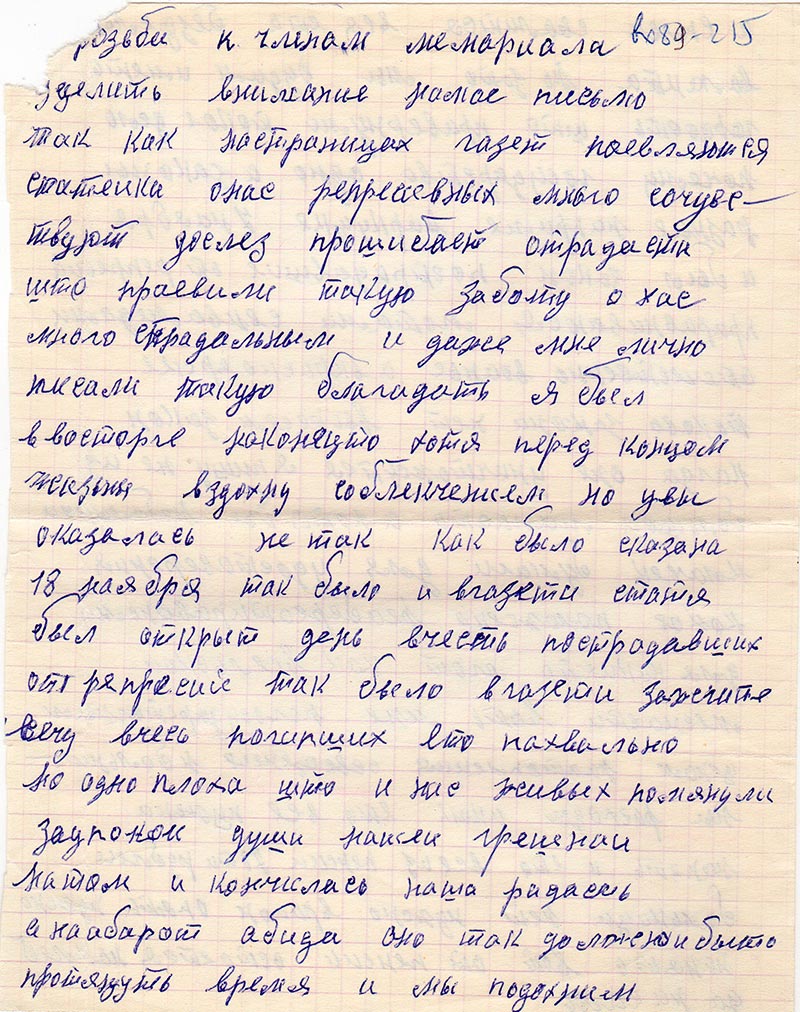 розьба к членам мемариала во89-215
уделить внимание намае письмо
так как настраницах газет поевляются
статейка онас репресевных много сочувс-
твуют дослез прошибает отрадасти
што праевили такую заботу о нас
много страдальным и даже мне лично
писали такую благадать я был
ввосторге наконецто хотя перед концом
жизьни вздохну соблекчением но увы
оказалась не так как было сказана
18 наября так было и вгазети статя
был открыт день вчесть пострадавших
от репресий так было вгазети зажгите
свечу вчесь погипших ето пахвально
но одно плоха што и нас живых помянули
заупокой души нашеи грешнаи
натом и кончилась наша радасть
а наабарот абида оно так должно и быть
протянуть время и мы подохним